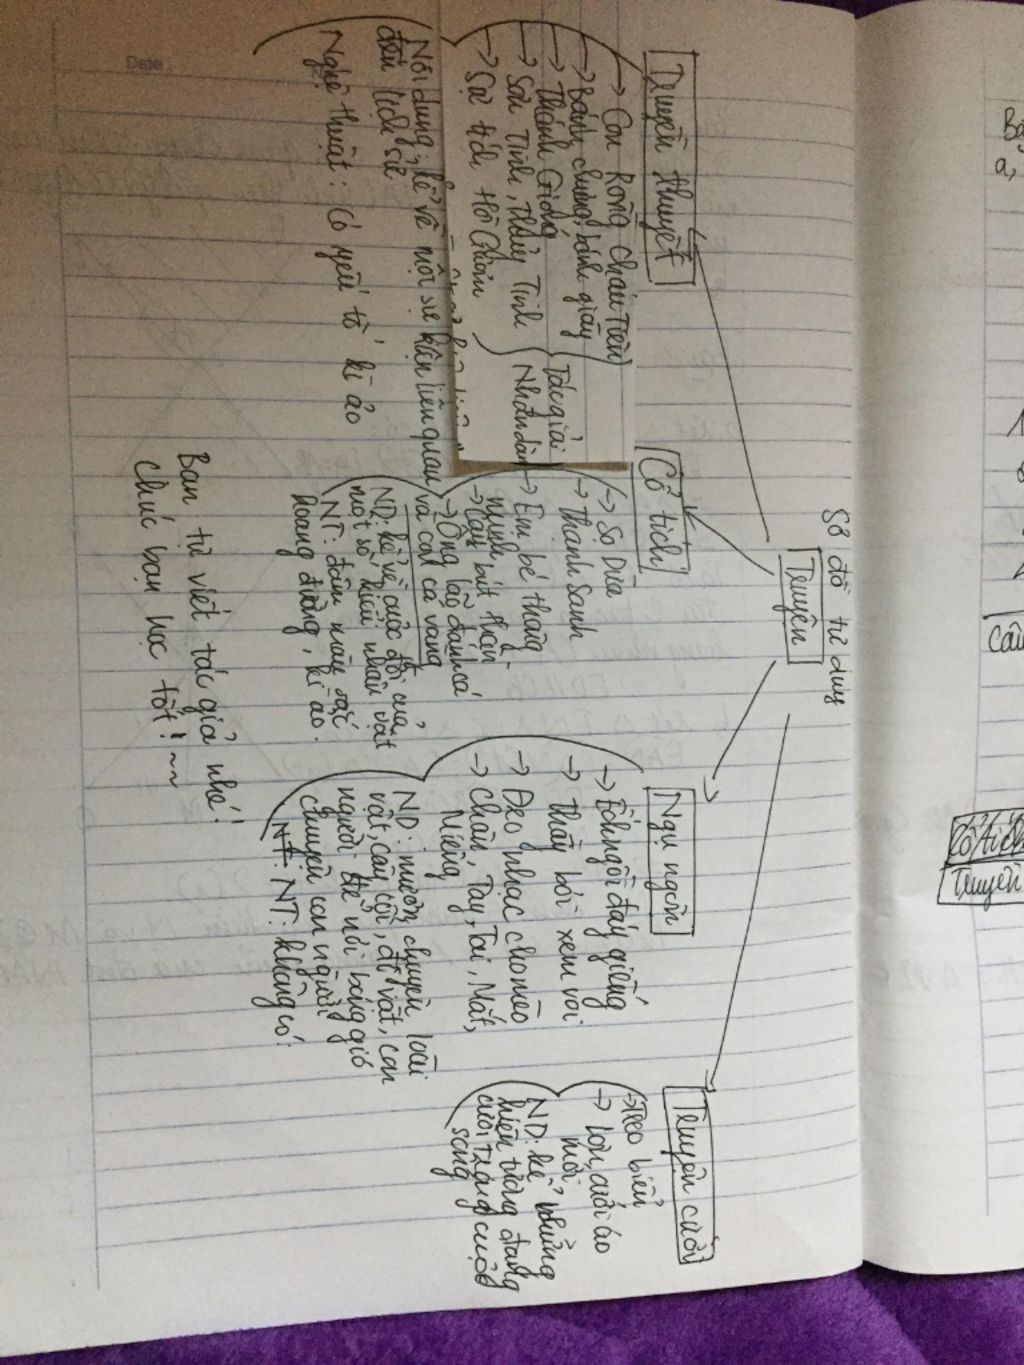 Sơ đồ tư duy
Truyện
Truyền thuyết
→ Con Rồng cháu Tiên
→ Bánh chưng, bánh giầy
→ Thánh Gióng
→ Sơn Tinh, Thủy Tinh
→ Sự tích Hồ Gươm
Tác giả:
Nhân dân
Nội dung: kể về một sự kiện liên quan
đến lịch sử
Nghệ thuật: Có yếu tố kì ảo
Cổ tích
→ Sọ Dừa
→ Thạch Sanh
→ Em bé thông
minh
→ Cây bút thần
→ Ông lão đánh cá
và con cá vàng
ND: kể về cuộc đời của
một số kiểu nhân vật
NT: đậm màu sắc
hoang đường, kì ảo.
Ngụ ngôn
→ Ếch ngồi đáy giếng
→ Thầy bói xem voi
→ Đeo nhạc cho mèo
→ Chân, Tay, Tai, Mắt,
Miệng
ND: mượn chuyện loài
vật, cây cối, đồ vật, con
người để nói bóng gió
chuyện con người
NT: không có!
Truyện cười
→ Treo biển
→ Lợn cưới, áo
mới
ND: kể những
hiện tượng đáng
cười trong cuộc
sống
Bạn tự viết tác giả nhé!
Chúc bạn học tốt! ~~
a,
Câu
Truyện